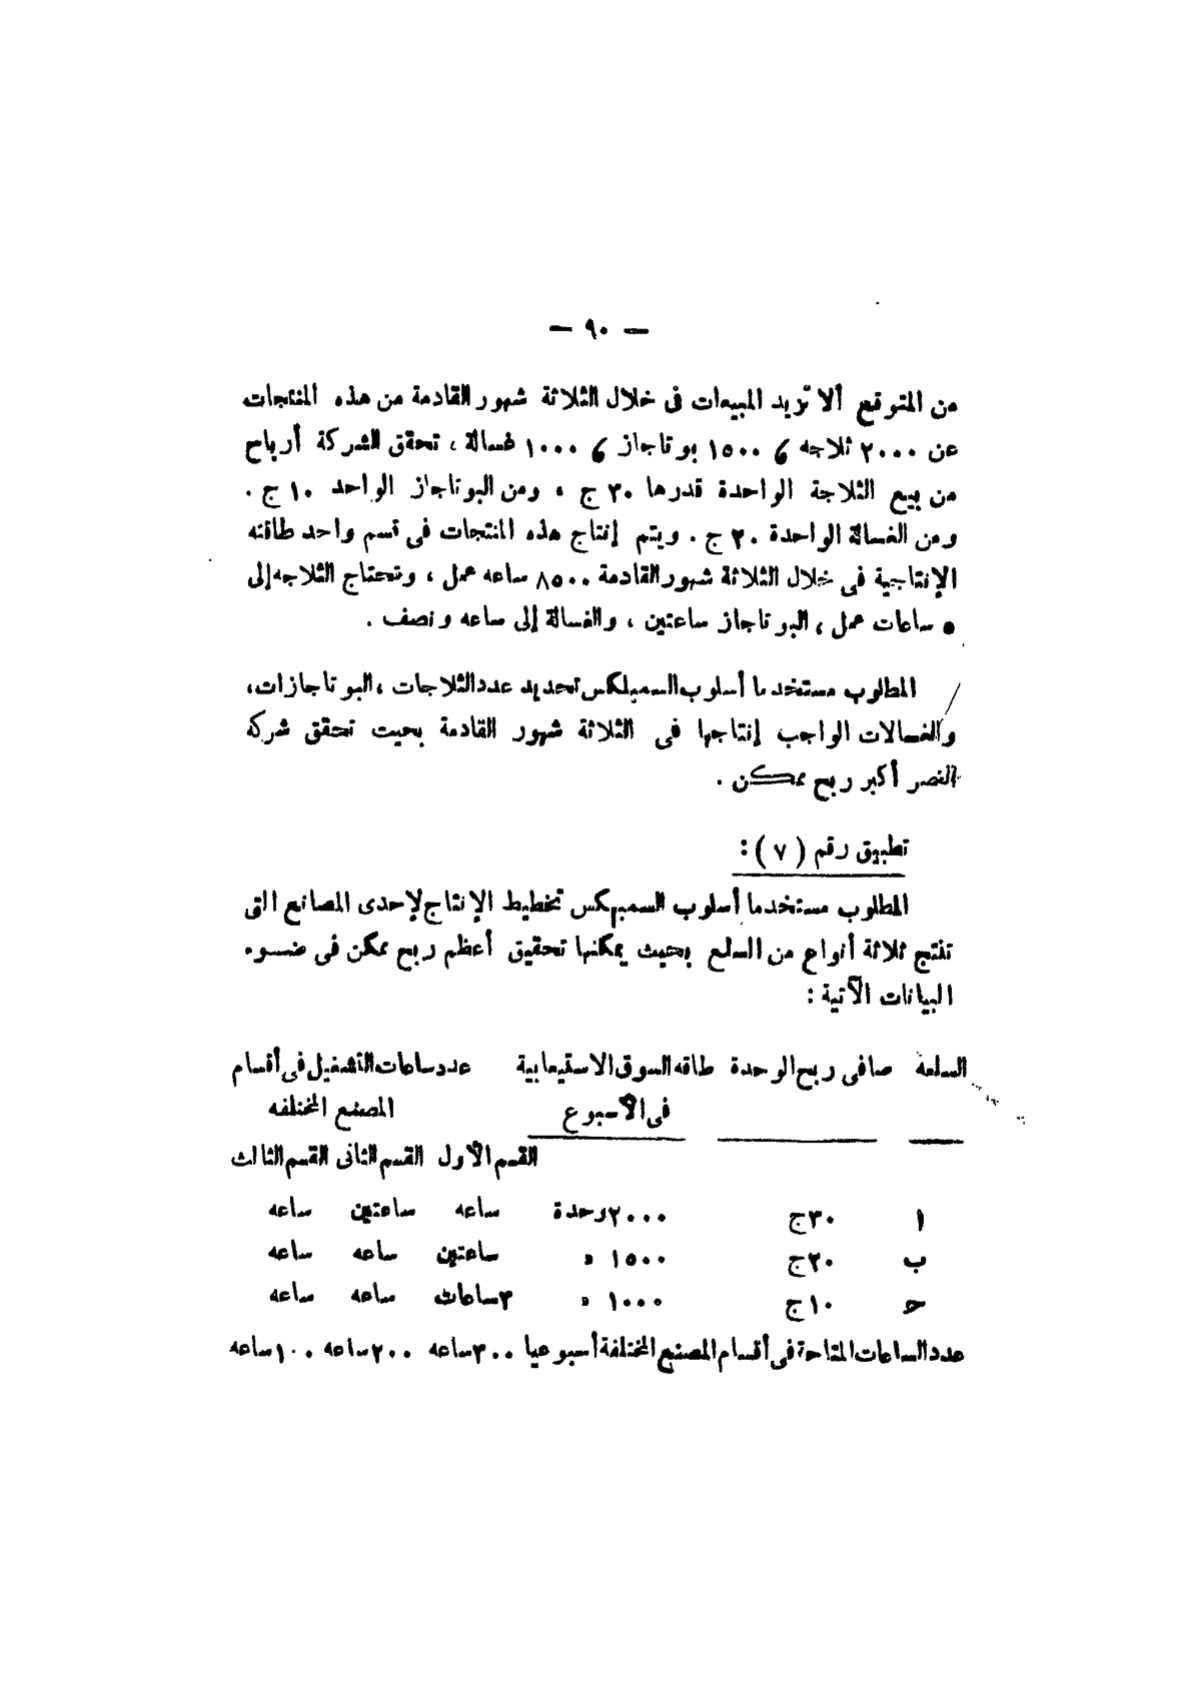 — ٩٠ —
من المتوقع ألا تزيد المبيعات فى خلال الثلاثة شهور القادمة من هذه المنتجات
عن ٢٠٠٠ ثلاجه ، ١٥٠٠ بوتاجاز ، ١٠٠٠ غسالة ، تحقق الشركة أرباح
من بيع الثلاجة الواحدة قدرها ٣٠ ج ، ومن البوتاجاز الواحد ١٠ ج .
ومن الغسالة الواحدة ٢٠ ج . ويتم إنتاج هذه المنتجات فى قسم واحد طاقته
الإنتاجية فى خلال الثلاثة شهور القادمة ٨٥٠٠ ساعه عمل ، وتحتاج الثلاجه إلى
٥ ساعات عمل ، البوتاجاز ساعتين ، والغسالة إلى ساعه ونصف .
المطلوب مستخدما أسلوب السمبلكس تحديد عدد الثلاجات ، البوتاجازات ،
والغسالات الواجب إنتاجها فى الثلاثة شهور القادمة بحيث تحقق شركة
النصر أكبر ربح ممكن .
تطبيق رقم ( ٧ ) :
المطلوب مستخدما أسلوب السمبكس تخطيط الإنتاج لإحدى المصانع التى
تنتج ثلاثة أنواع من السلع بحيث يمكنها تحقيق أعظم ربح ممكن فى ضوء
البيانات الآتية :
السلعة صافى ربح الوحدة طاقه السوق الاستيعابية عدد ساعات التشغيل فى أقسام
فى الأسبوع المصنع المختلفه
القسم الأول القسم الثانى القسم الثالث
ا ٣٠ج ٢٠٠٠وحدة ساعه ساعتين ساعه
ب ٢٠ج ١٥٠٠ » ساعتين ساعه ساعه
حـ ١٠ج ١٠٠٠ » ٣ساعات ساعه ساعه
عدد الساعات المتاحة فى أقسام المصنع المختلفة أسبوعيا ٣٠٠ساعه ٢٠٠ساعه ١٠٠ساعه